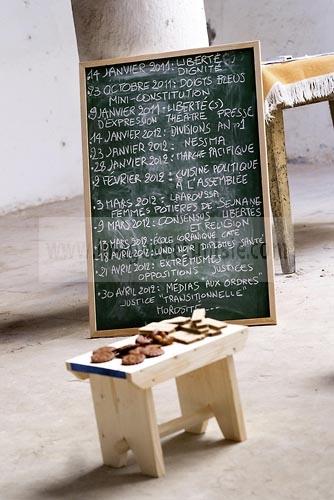 14 JANVIER 2011: LIBERTÉ
DIGNITÉ
23 OCTOBRE 2011: DOIGTS BLEUS
MINI-CONSTITUTION
9 JANVIER 2011: LIBERTÉ(S)
D'EXPRESSION THÉATRE PRESSE
14 JANVIER 2012: DIVISIONS AN 1
23 JANVIER 2012: NESSMA
28 JANVIER 2012: MARCHE PACIFIQUE
2 FÉVRIER 2012: CUISINE POLITIQUE
À L'ASSEMBLÉE
3 MARS 2012: LAAROUSSA
FEMMES POTIERES DE SEJNANE
9 MARS 2012: CONSENSUS LIBERTES
ET RELIGION
13 MARS 2012: ÉCOLE CORANIQUE
18 AVRIL 2012: LUNDI NOIR DIPLOMÉS SANTÉ
21 AVRIL 2012: EXTRÉMISMES
OPPOSITIONS JUSTICES
30 AVRIL 2012: MÉDIAS AUX ORDRES
JUSTICE "TRANSITIONNELLE"
MOROSITÉ...